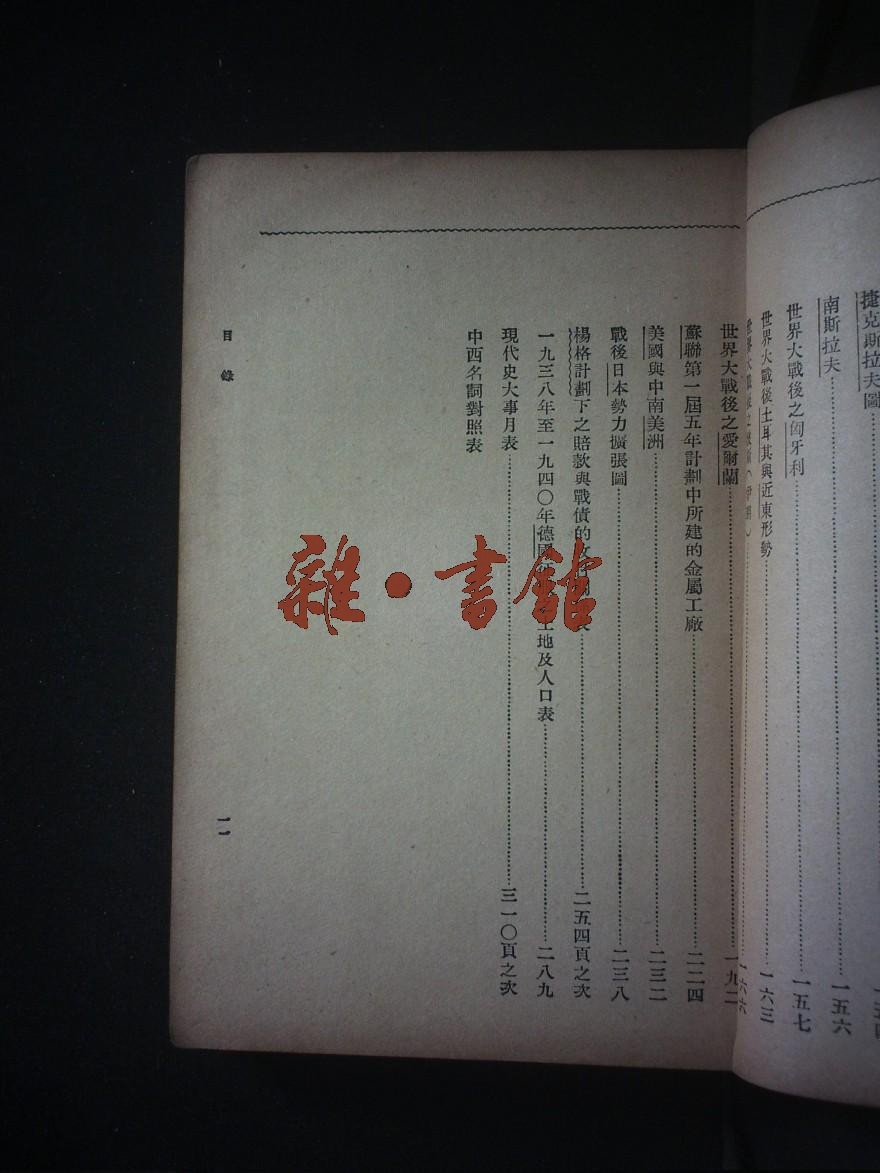 捷克斯拉夫圖
南斯拉夫 一五六
世界大戰後之匈牙利 一五七
世界大戰後土耳其與近東形勢 一六三
一六六
世界大戰後之愛爾蘭 一九二
蘇聯第一屆五年計劃中所建的金屬工廠 二二四
美國與中南美洲 二三二
戰後日本勢力擴張圖 二三八
楊格計劃下之賠款與戰債的 二五四頁之次
一九三八年至一九四〇年德國 土地及人口表 二八九
現代史大事月表 三一〇頁之次
中西名詞對照表
目錄
一一
雜·書館